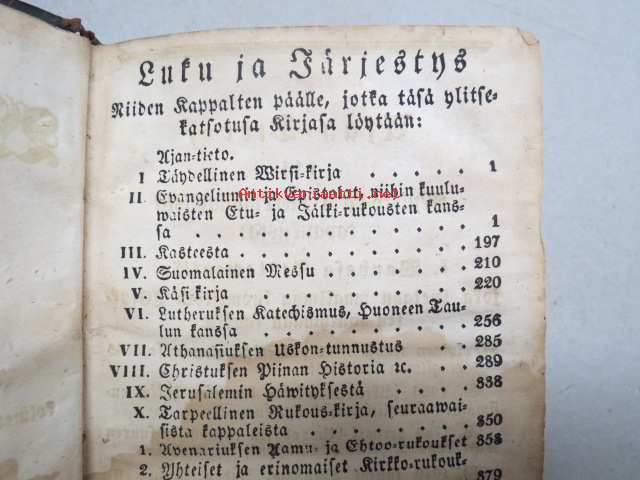 Luku ja Järjestys
Niiden Kappalten päälle, jotka täsä ylitse-
katsotusa Kirjasa löytään:
Ajan-tieto.
I Täydellinen Wirsi-kirja . . . . . 1
II. Evangeliumit ja Epistolat, niihin kuulu-
waisten Etu- ja Jälki-rukousten kans-
sa . . . . . . . . . . . 1
III. Kasteesta . . . . . . . . . 197
IV. Suomalainen Messu . . . . . . 210
V. Käsi-kirja . . . . . . . . . 220
VI. Lutheruksen Katechismus, Huoneen Tau-
lun kanssa . . . . . . . . . 256
VII. Athanasiuksen Uskon-tunnustus . . . 285
VIII. Christuksen Piinan Historia ꝛc. . . . 289
IX. Jerusalemin Häwityksestä . . . . 338
X. Tarpeellinen Rukous-kirja, seuraawai-
sista kappaleista . . . . . . . 350
1. Avenariuksen Aamu- ja Ehtoo-rukoukset 353
2. Yhteiset ja erinomaiset Kirkko-rukouk-
379